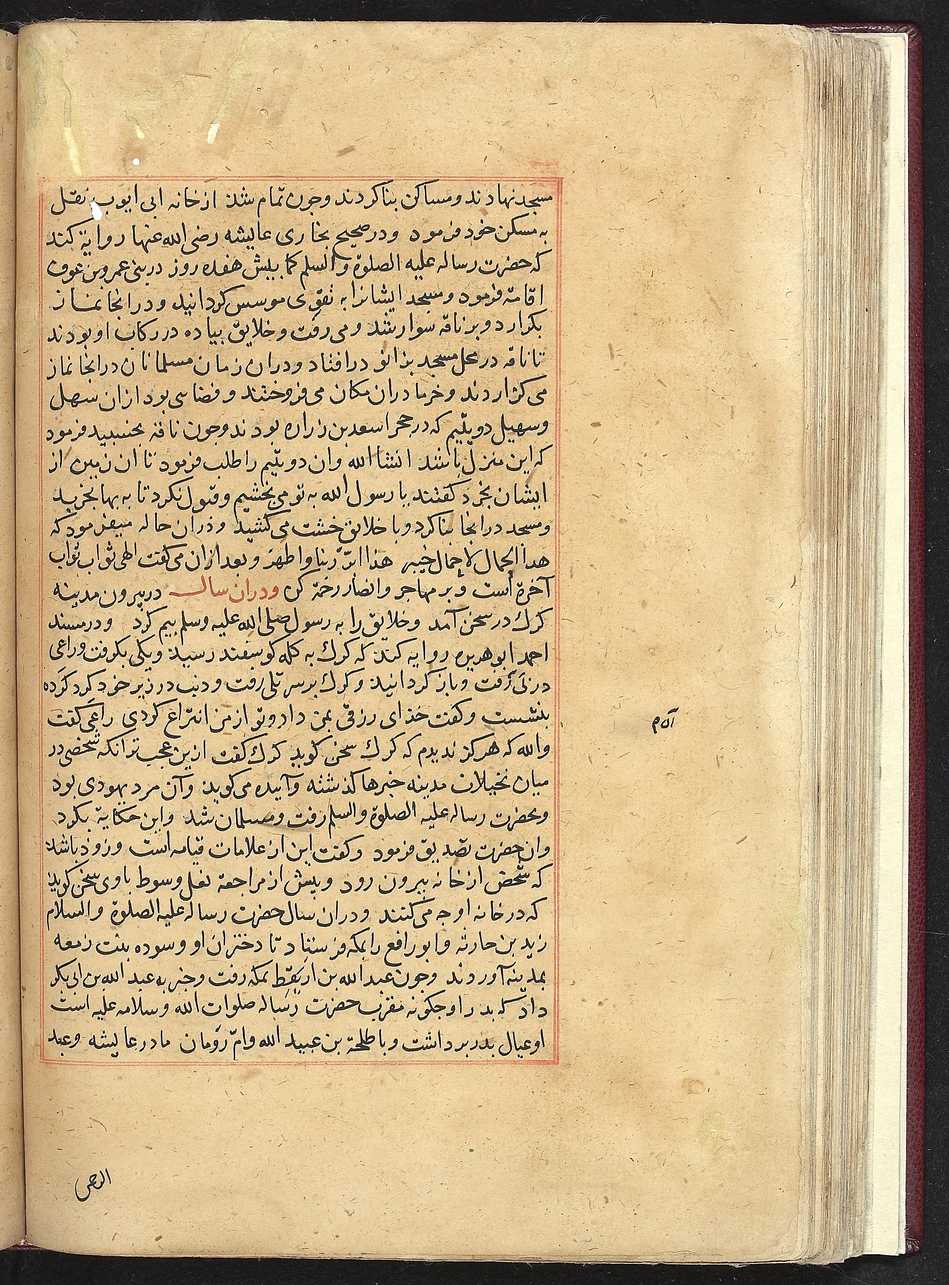 مسجد نهادند ومساکن بناکردند وچون تمام شد از خانه ابی ایوب نقل
به مسکن خود فرمود ودر صحیح بخاری عایشه رضی الله عنها روایة کند
که حضرت رساله علیه الصلوة والسلم کما بیش هفده روز در بنی عمرو بن عوف
اقامة فرمود ومسجد ایشانرا به تقوی موسس کردانید ودر انجا نماز
بکزارد وبر ناقه سوار شد ومی رفت وخلایق پیاده در رکاب او بودند
تا ناقه در محل مسجد بزانو درافتاد ودران زمان مسلمانان درانجا نماز
می کزاردند وخرما دران مکان می فروختند وفضاسی بود ازان سهل
وسهیل دو یتیم که در حجر اسعد بن زراره بودند وچون ناقه بخسبید فرمود
که این منزل باشد انشا الله وان دو یتیم را طلب فرمود تا ان زمین از
ایشان بخرد کفتند یا رسول الله به تو می بخشیم وقبول نکرد تا به بها بخرید
ومسجد درانجا بنا کرد وبا خلایق خشت می کشید ودران حاله میفرمود که
هذا الحمال لا حمال خیبر هذا ابرّ ربنا واطهر وبعد ازان می کفت الهی ثواب ثواب
آخرة است وبر مهاجر وانصار رحمة کن ودران سال در بیرون مدینه
کرک در سخن آمد وخلایق را به رسول صلی الله علیه وسلم بیم کرد ودر مسند
احمد ابو هریره روایه کند که کرک به کله کوسفند رسید ویکی بکرفت وراعی
در پی رفت وباز کردانید وکرک بر سر تلی رفت ودنب در زیر خود کرد کرده
بنشست وکفت خدای رزقی بمن داد وتو از من انتزاع کردی راعی کفت
والله که هرکز ندیدم که کرک سخن کوید کرک کفت ازین عجب تر انکه شخصی در
میان نخیلات مدینه خبرها کذشته وآینده می کوید وآن مرد یهودی بود
وبحضرت رساله علیه الصلوة والسلم رفت ومسلمان شد واین حکایة بکرد
وان حضرت تصدیق فرمود وکفت این از علامات قیامه است وزود باشد
که شخص از خانه بیرون رود وپیش از مراجعة نعل وسوط با وی سخن کوید
که در خانه او چه می کنند ودران سال حضرت رساله علیه الصلوة والسلام
زید بن حارثه وابو رافع را بمکه فرستاد تا دختران او وسوده بنت زمعه
بمدینه آوردند وچون عبد الله بن اریقط بمکه رفت وخبر به عبد الله بن ابی بکر
داد که پدر او چکونه مقرب حضرت رساله صلوات الله وسلامه علیه است
او عیال پدر برداشت وبا طلحة بن عبید الله وامّ رومان مادر عایشه وعبد
الرحمن